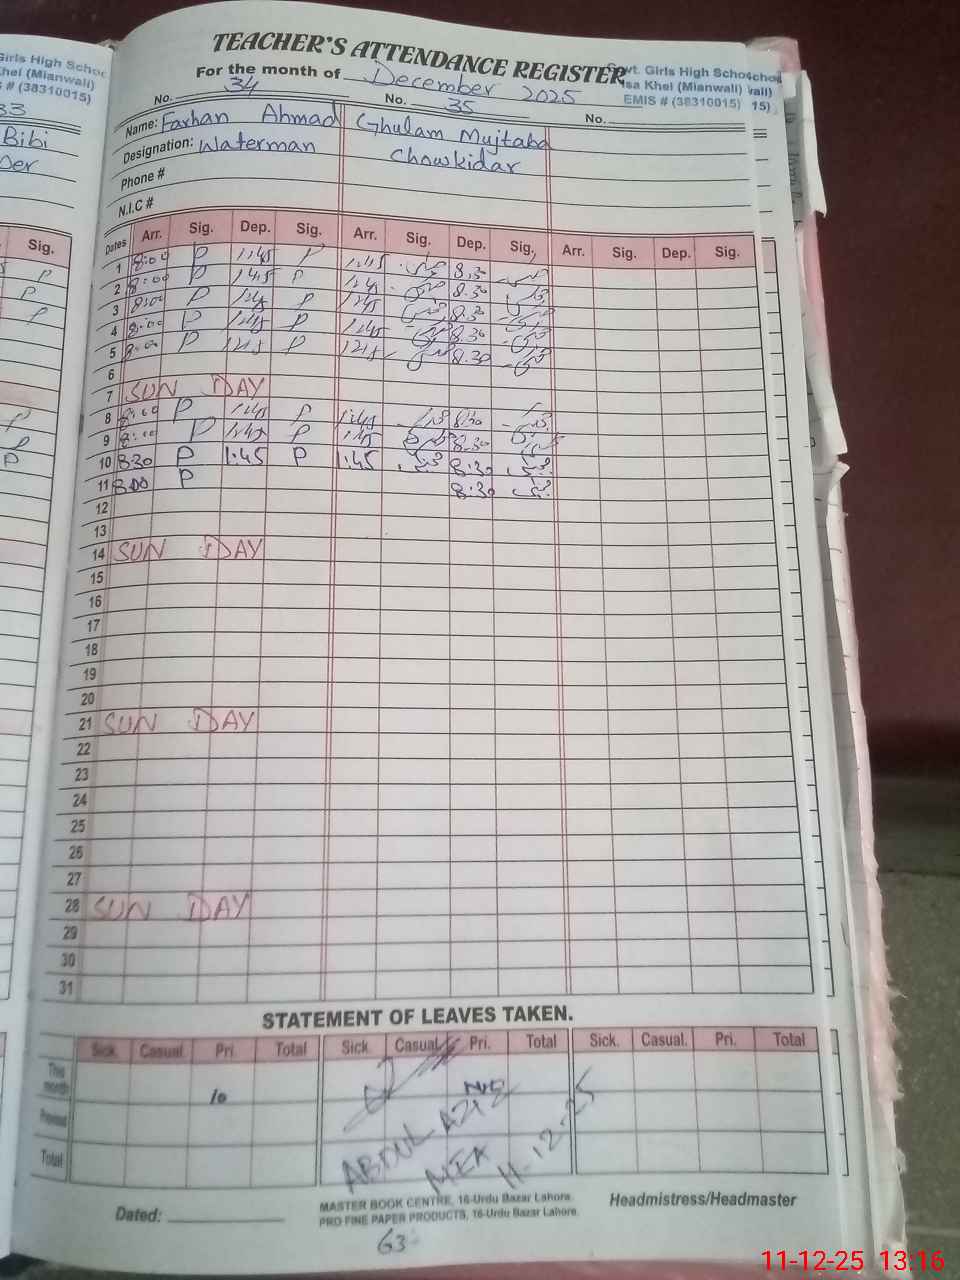 TEACHER'S ATTENDANCE REGISTER
For the month of December 2025
Govt. Girls High School
Isa Khel (Mianwali)
EMIS # (38310015)
Girls High School
Khel (Mianwali)
S # (38310015)
33
Bibi
No. 34 No. 35 No.
Name: Farhan Ahmad Ghulam Mujtaba
Designation: Waterman Chowkidar
Phone #
N.I.C #
Sig.
Dates Arr. Sig. Dep. Sig. Arr. Sig. Dep. Sig. Arr. Sig. Dep. Sig.
1 8:00 P 1:45 P 1:45 8.30
2 8:00 P 1:45 P 1:45 8.30
3 8:00 P 1:45 P 1:45 8.30
4 8:00 P 1:45 P 1:45 8.30
5 8:00 P 1215 P 1215 8.30
6
7 SUN DAY
8 8:00 P 1:45 P 1:45 8:30
9 8:00 P 1:45 P 1:45 8.30
10 830 P 1:45 P 1:45 8:30
11 800 P 8:30
12
13
14 SUN DAY
15
16
17
18
19
20
21 SUN DAY
22
23
24
25
26
27
28 SUN DAY
29
30
31
STATEMENT OF LEAVES TAKEN.
Sick. Casual. Pri. Total Sick. Casual. Pri. Total Sick. Casual. Pri. Total
This month
10
Previous
Total
ABDUL AZIZ
MEA
11-12-25
Dated:
MASTER BOOK CENTRE, 16-Urdu Bazar Lahore.
PRO FINE PAPER PRODUCTS, 16-Urdu Bazar Lahore.
Headmistress/Headmaster
63
11-12-25 13:16